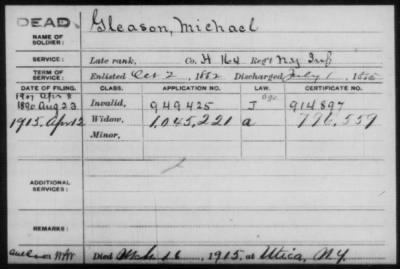 DEAD
Gleason, Michael
NAME OF SOLDIER:
SERVICE: Late rank, Co. H 164 Reg't N.Y. Inf
TERM OF SERVICE: Enlisted Oct 2, 1862 Discharged July 1, 1865
DATE OF FILING. CLASS. APPLICATION NO. LAW. CERTIFICATE NO.
1907 Apr 8 Age
1890 Aug 23 Invalid, 949425 J 914897
1915, Apr 12 Widow, 1,045,221 a 790,559
Minor,
ADDITIONAL SERVICES:
REMARKS:
Died 16, 1915, at Utica, N.Y.